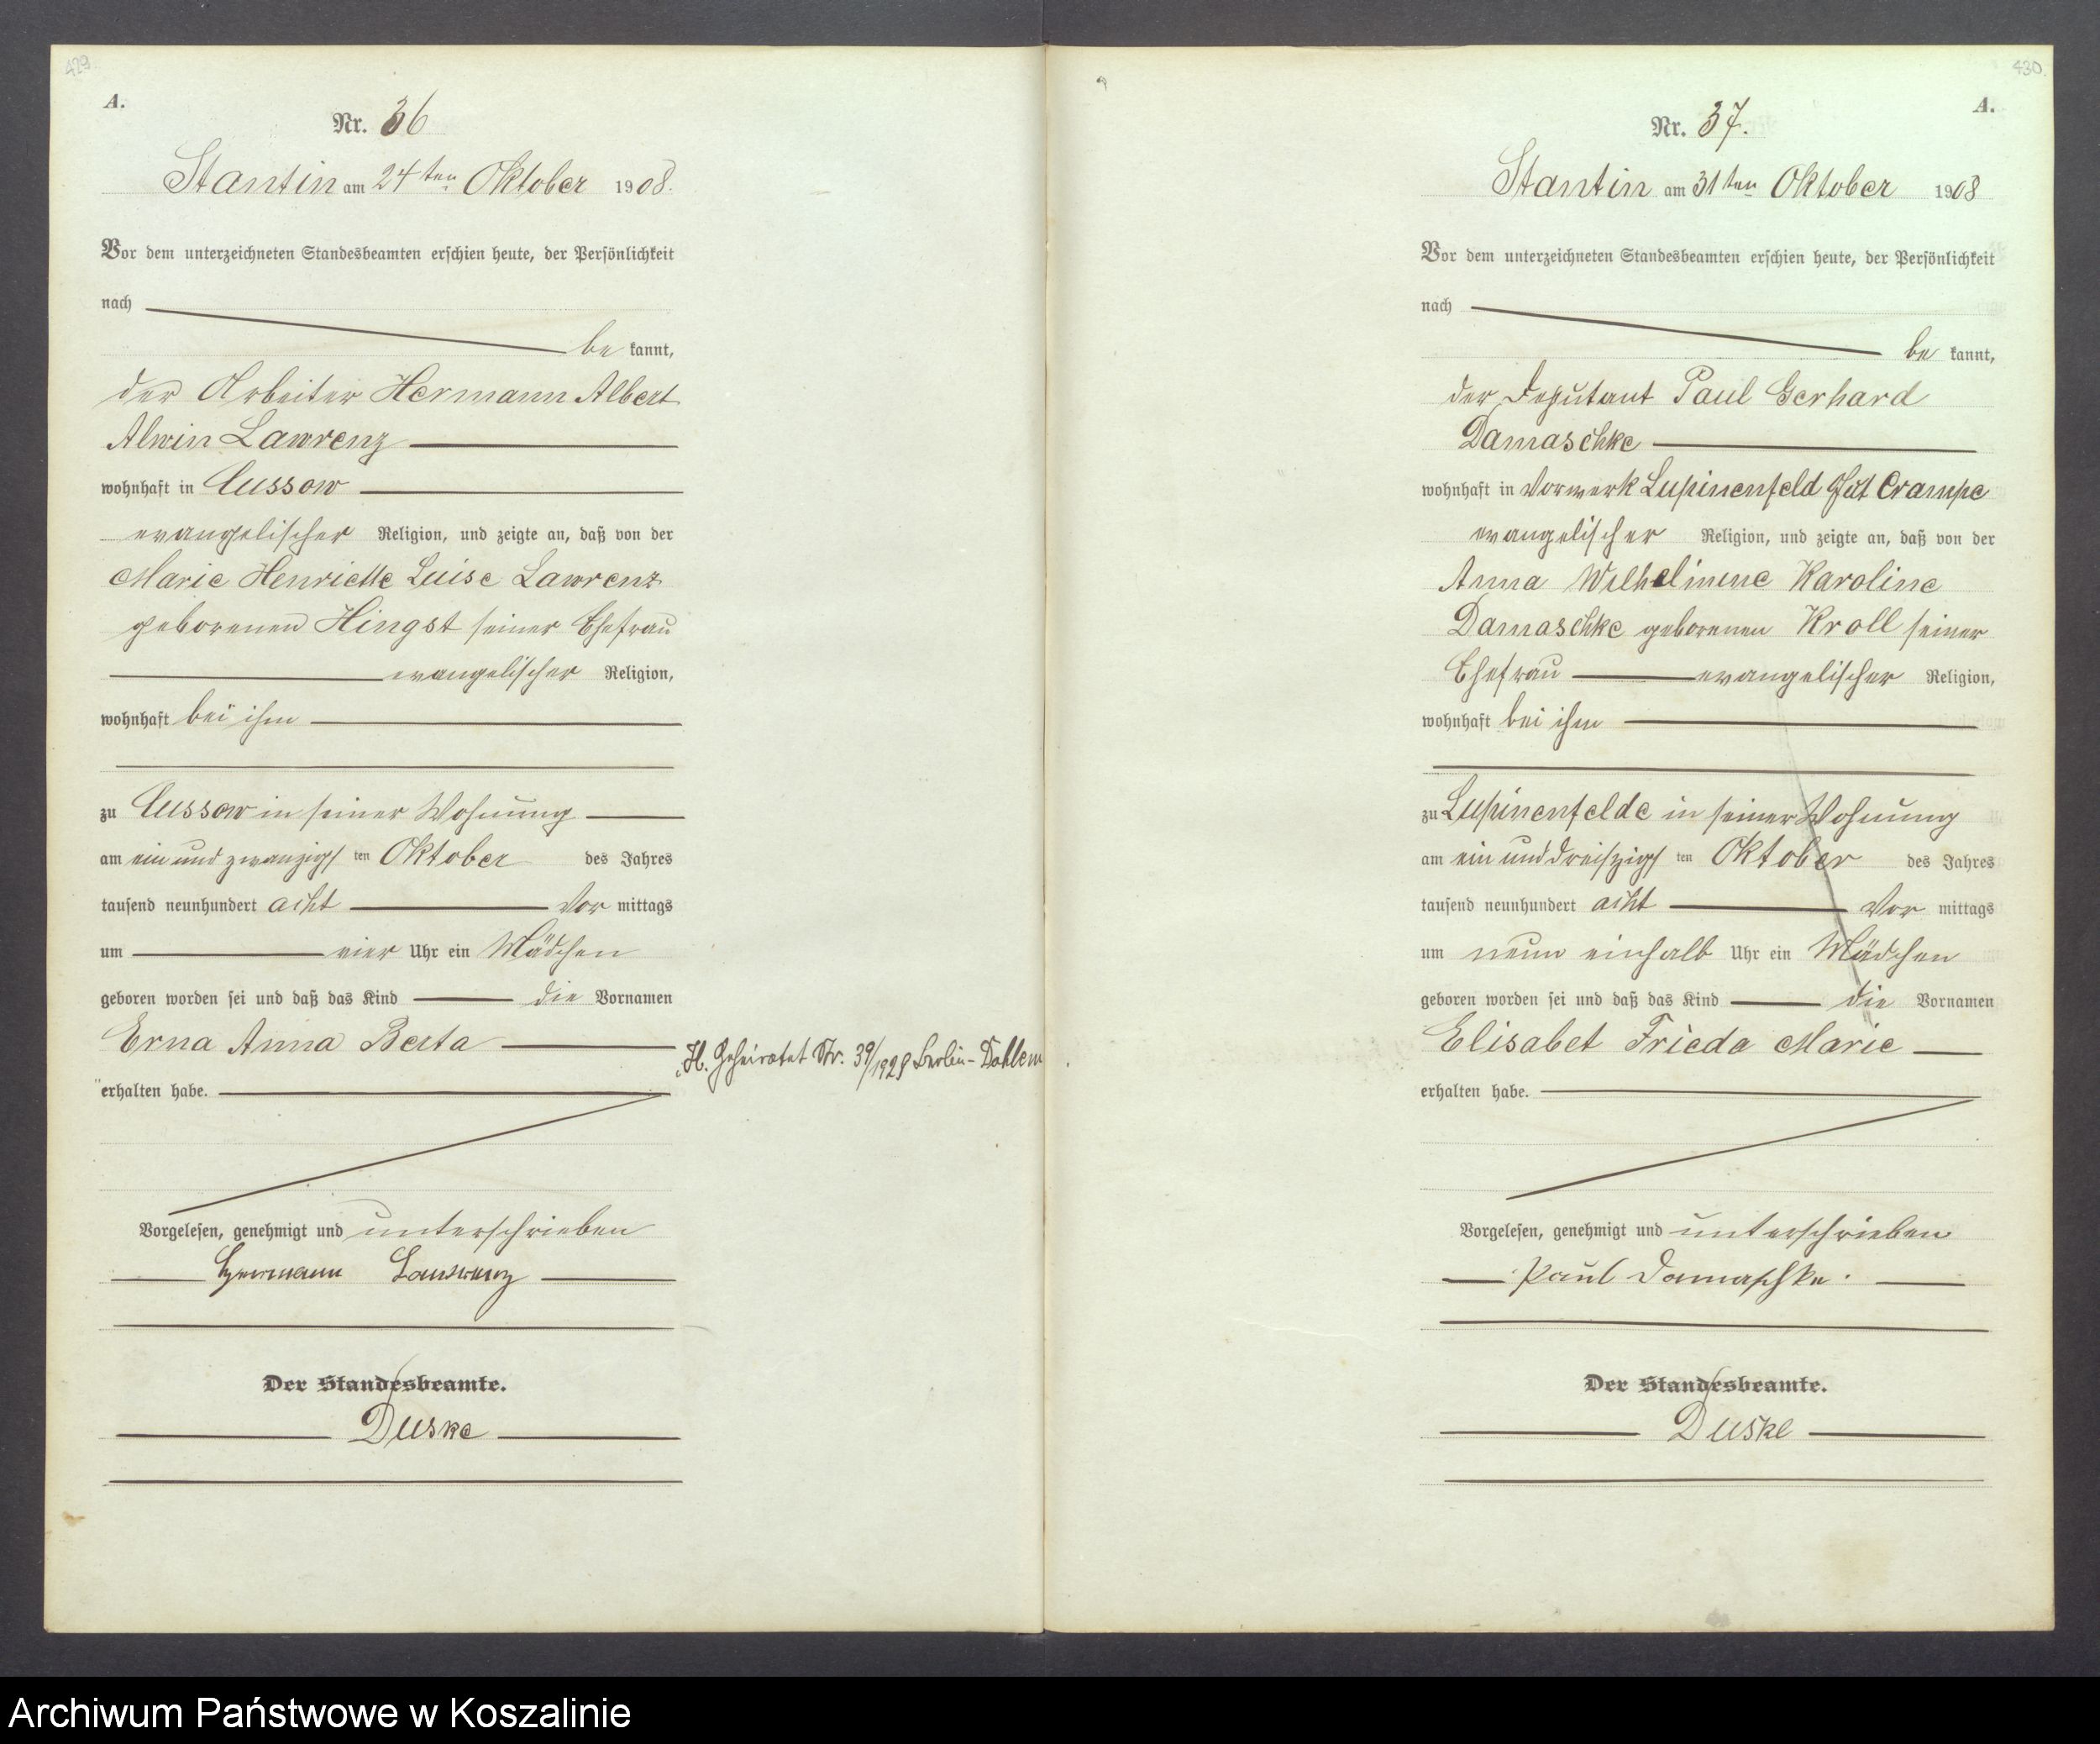 429
A.
Nr. 36
Stantin am 24ten Oktober 1908.
Vor dem unterzeichneten Standesbeamten erschien heute, der Persönlichkeit
nach
be kannt,
der Arbeiter Hermann Albert
Alwin Lawrenz
wohnhaft in Cussow
evangelischer Religion, und zeigte an, daß von der
Marie Henriette Luise Lawrenz
geborenen Hingst seiner Ehefrau
evangelischer Religion,
wohnhaft bei ihm
zu Cussow in seiner Wohnung
am ein und zwanzigsten Oktober des Jahres
tausend neunhundert acht Vor mittags
um vier Uhr ein Mädchen
geboren worden sei und daß das Kind die Vornamen
Erna Anna Berta
erhalten habe.
Vorgelesen, genehmigt und unterschrieben
Hermann Lawrenz
Der Standesbeamte.
Duske
H. Geheiratet Nr. 39/1929 Berlin-Dahlem
430.
A.
Nr. 37.
Stantin am 31ten Oktober 1908
Vor dem unterzeichneten Standesbeamten erschien heute, der Persönlichkeit
nach
be kannt,
der Deputant Paul Gerhard
Damaschke
wohnhaft in Vorwerk Lupinenfeld Gut Crampe
evangelischer Religion, und zeigte an, daß von der
Anna Wilhelmine Karoline
Damaschke geborenen Kroll seiner
Ehefrau evangelischer Religion,
wohnhaft bei ihm
zu Lupinenfelde in seiner Wohnung
am ein und dreiszigsten Oktober des Jahres
tausend neunhundert acht Vor mittags
um neun einhalb Uhr ein Mädchen
geboren worden sei und daß das Kind die Vornamen
Elisabet Frieda Marie
erhalten habe.
Vorgelesen, genehmigt und unterschrieben
Paul Damaschke.
Der Standesbeamte.
Duske
Archiwum Państwowe w Koszalinie